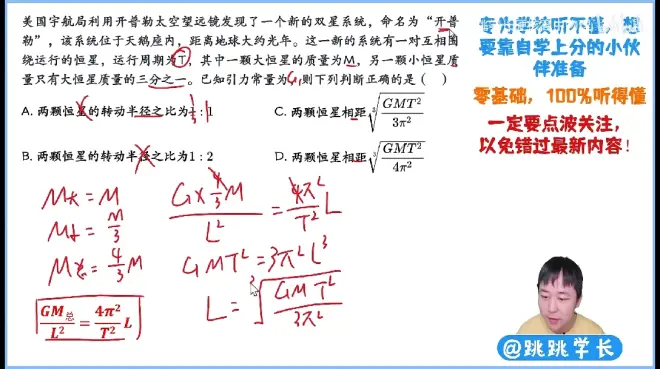 美国宇航局利用开普勒太空望远镜发现了一个新的双星系统,命名为“开普
勒”,该系统位于天鹅座内,距离地球大约光年。这一新的系统有一对互相围
绕运行的恒星,运行周期为T,其中一颗大恒星的质量为M,另一颗小恒星质
量只有大恒星质量的三分之一。已知引力常量为G,则下列判断正确的是( )
A. 两颗恒星的转动半径之比为1:1
C. 两颗恒星相距∛(GMT²/3π²)
B. 两颗恒星的转动半径之比为1:2
D. 两颗恒星相距∛(GMT²/4π²)
M大 = M
M小 = M/3
M总 = 4/3 M
GM总/L² = 4π²/T² L
G×4/3M / L² = 4π²/T² L
GMT² = 3π²L³
L = ∛(GMT²/3π²)
专为学校听不懂,想
要靠自学上分的小伙
伴准备
零基础,100%听得懂
一定要点波关注,
以免错过最新内容!
@跳跳学长